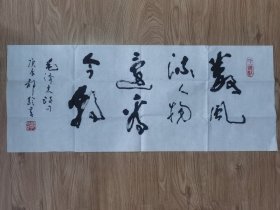 数风
流人物
还看
今朝
毛泽东词句
庚辰
书